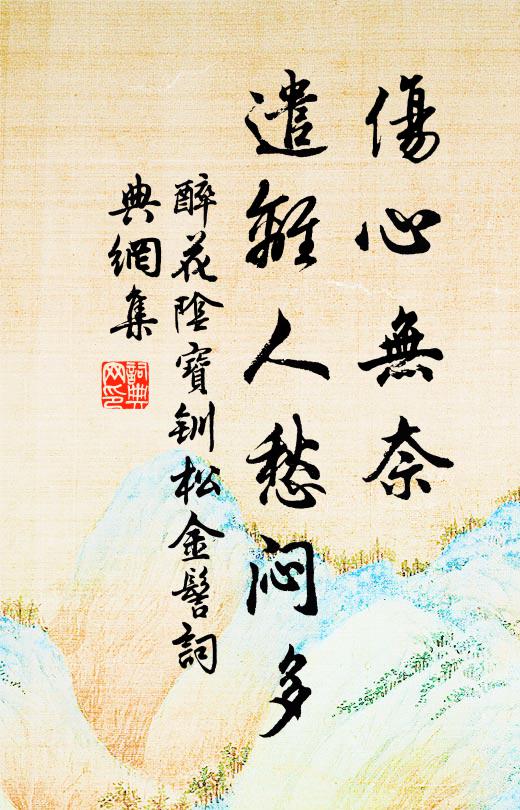 傷心無奈
遣離人愁闷多
醉花陰寶釧松金髻詞
典網集
詞典
网印